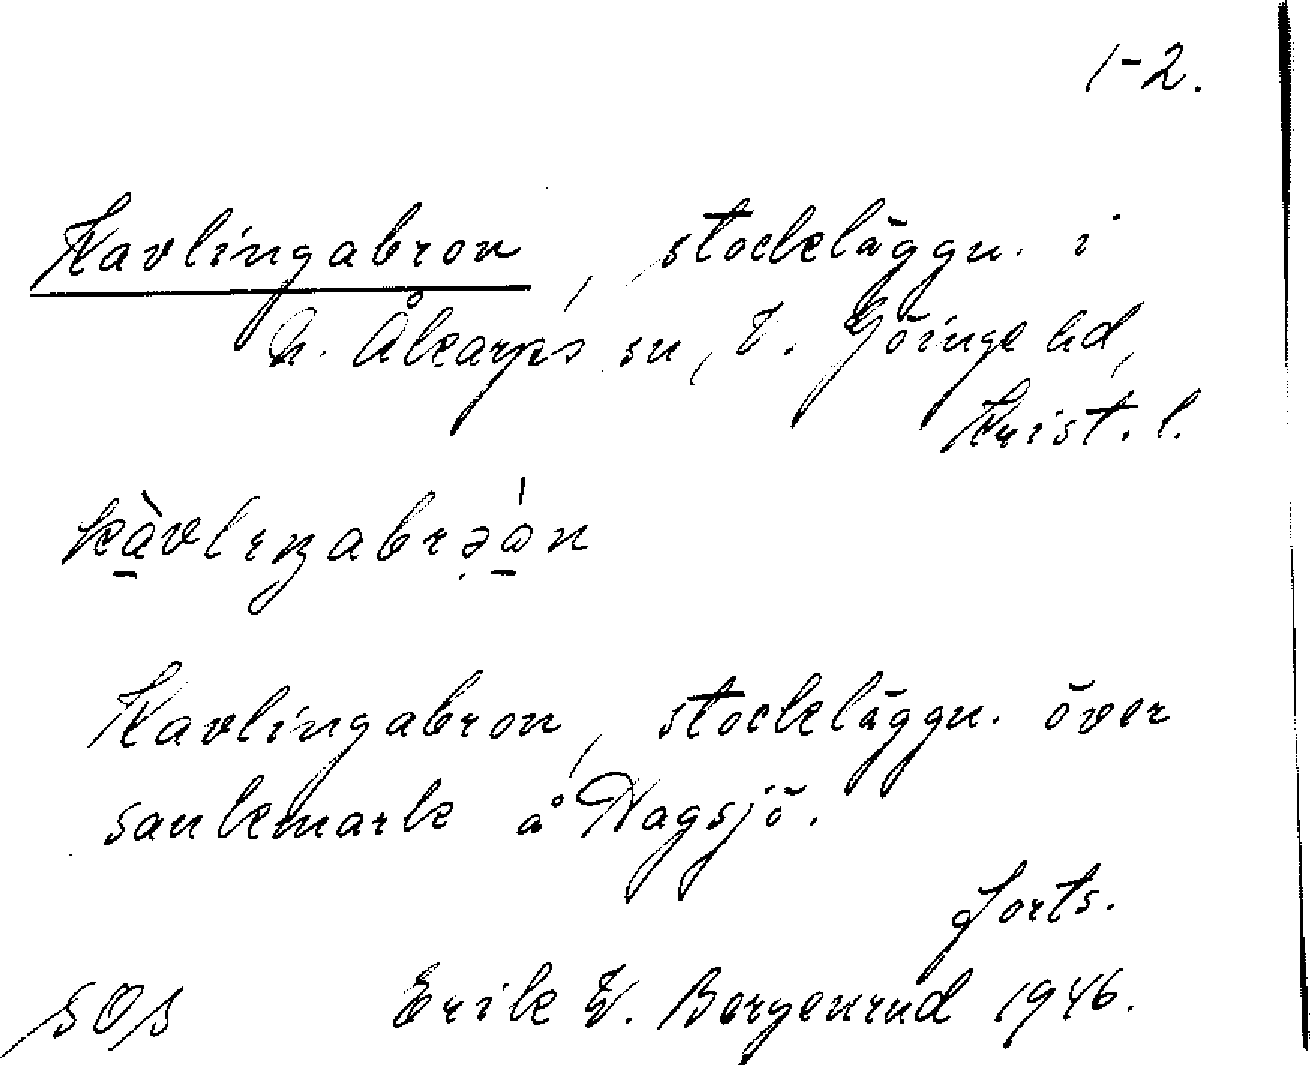 1-2.
Kavlingabron, stockläggn. i
N. Åkarps sn, V. Göinge hd,
Krist. l.
kàvlıŋabrə̣án
Kavlingabron, stockläggn. över
sankmark å Hagsjö.
forts.
SOS Erik W. Bergenrud 1946.